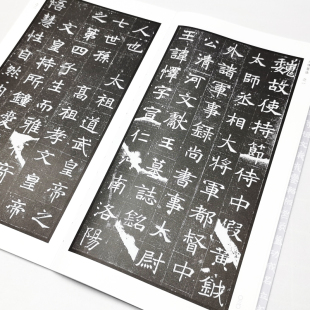 魏故使持節侍中假黃鉞
太師丞相大將軍都督中
外諸軍事錄尚書事太尉
公清河文獻王墓誌銘
王諱懌字宣仁河南洛陽
人也 太祖道武皇帝之
七世孫 高祖孝文皇帝
之第四子生而
文皇帝特所鍾
悟慧性自然